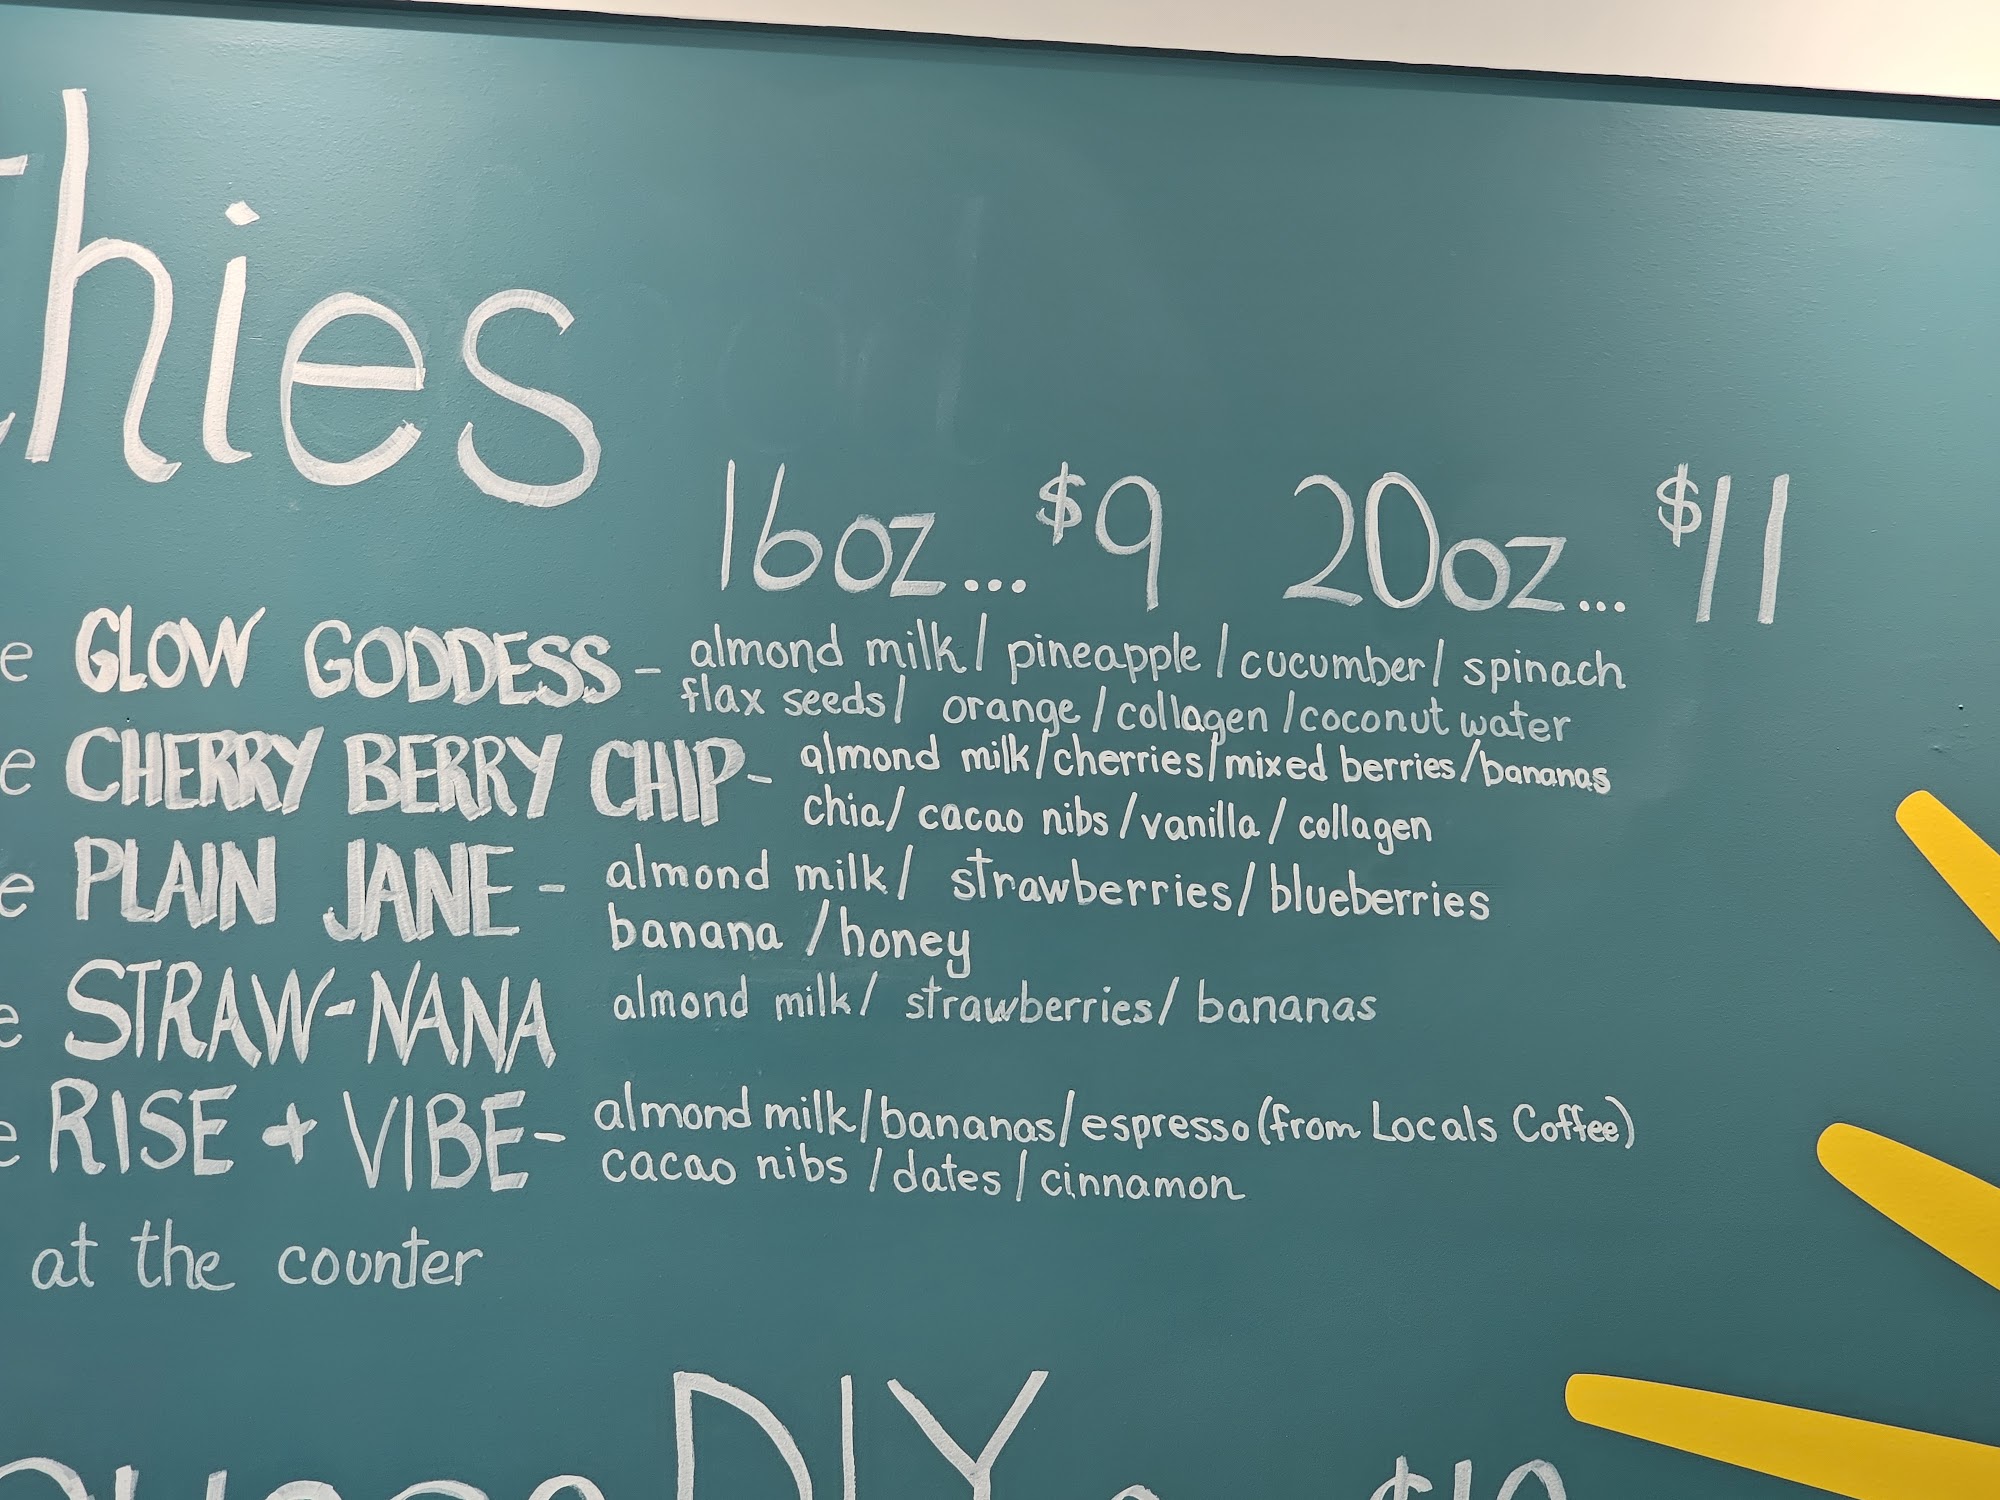 thies
16oz... $9 20oz... $11
e GLOW GODDESS - almond milk / pineapple / cucumber / spinach
flax seeds / orange / collagen / coconut water
e CHERRY BERRY CHIP - almond milk / cherries / mixed berries / bananas
chia / cacao nibs / vanilla / collagen
e PLAIN JANE - almond milk / strawberries / blueberries
banana / honey
e STRAW-NANA almond milk / strawberries / bananas
e RISE + VIBE - almond milk / bananas / espresso (from Locals Coffee)
cacao nibs / dates / cinnamon
at the counter
DIY